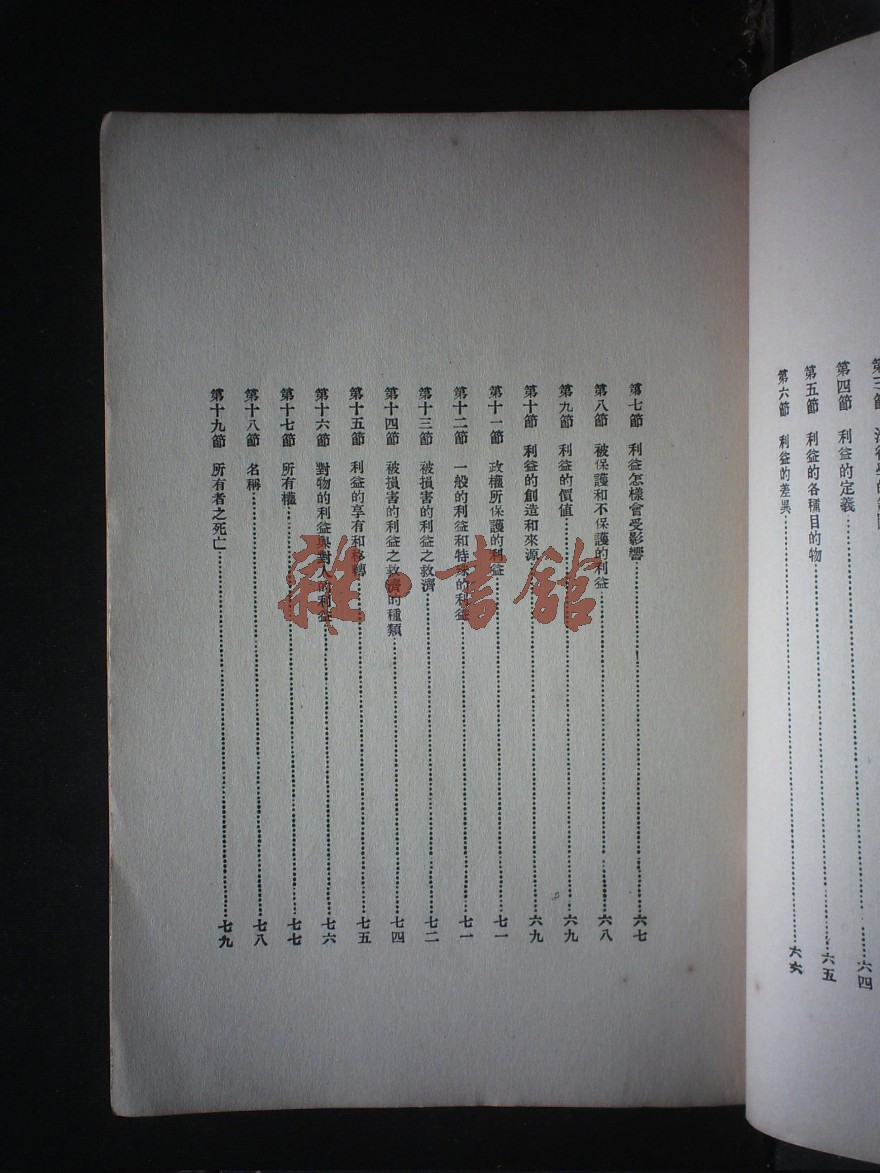 第四節 利益的定義……六四
第五節 利益的各種目的物……六五
第六節 利益的差異……六六
第七節 利益怎樣會受影響……六七
第八節 被保護和不保護的利益……六八
第九節 利益的價值……六九
第十節 利益的創造和來源……六九
第十一節 政權所保護的利益……七一
第十二節 一般的利益和特殊的利益……七一
第十三節 被損害的利益之救濟……七二
第十四節 被損害的利益之救濟的種類……七四
第十五節 利益的享有和移轉……七五
第十六節 對物的利益與對人的利益……七六
第十七節 所有權……七七
第十八節 名稱……七八
第十九節 所有者之死亡……七九
雜·書館